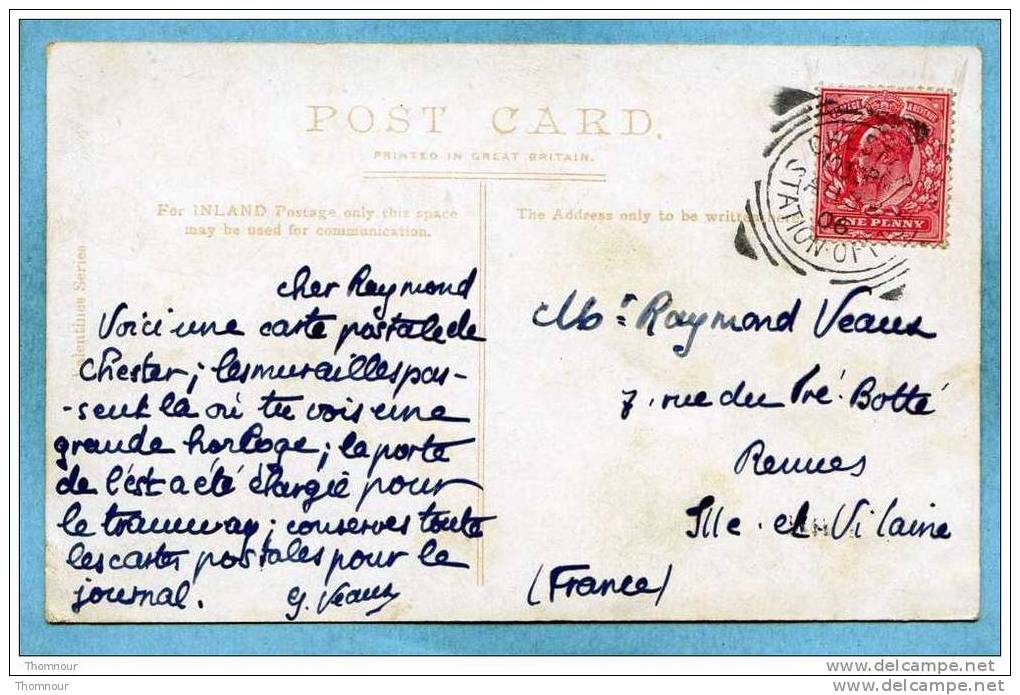 POST CARD.
PRINTED IN GREAT BRITAIN.
For INLAND Postage only this space
may be used for communication.
The Address only to be written
alentines Series
STATION OF
06
ONE PENNY
cher Raymond
Voici une carte postale de
Chester; les murailles pas-
-sent là où tu vois une
grande horloge; la porte
de l'est a été élargie pour
le tramway; conserves toute
les cartes postales pour le
journal.
G. Veaux
Mr. Raymond Veaux
7. rue du Pré. Botté
Rennes
Ille. et Vilaine
(France)
Thomnour
Thomnour
www.delcampe.net
www.delcampe.net